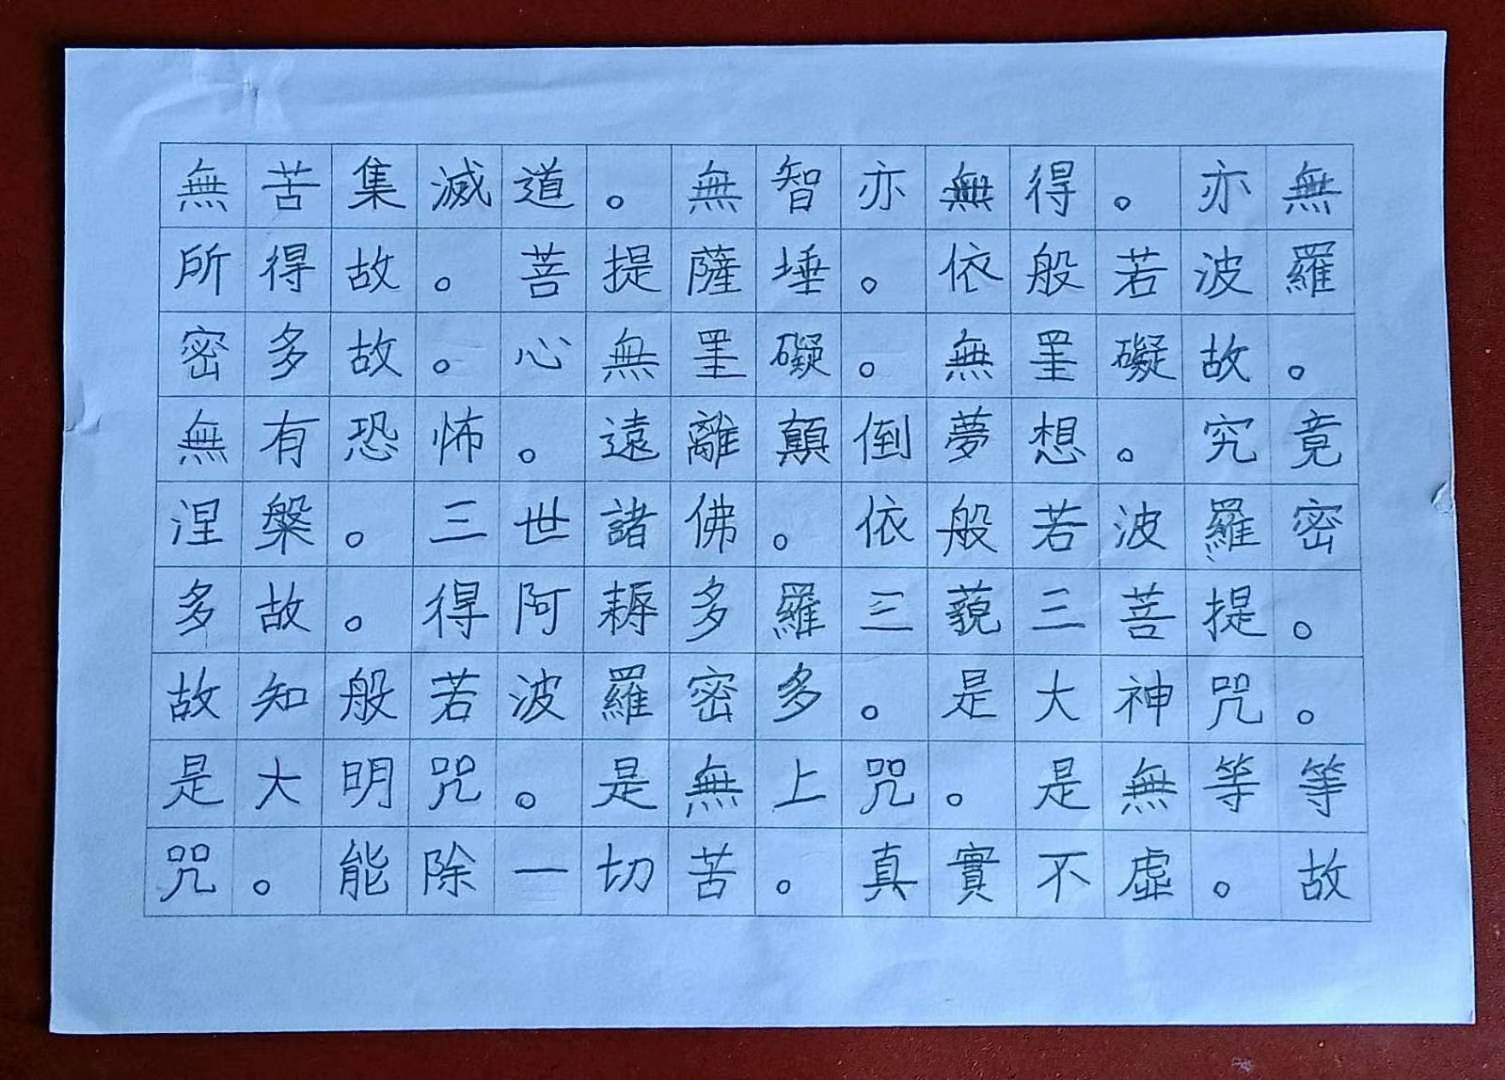 無苦集滅道。無智亦無得。亦無
所得故。菩提薩埵。依般若波羅
密多故。心無罣礙。無罣礙故。
無有恐怖。遠離顛倒夢想。究竟
涅槃。三世諸佛。依般若波羅密
多故。得阿耨多羅三藐三菩提。
故知般若波羅密多。是大神咒。
是大明咒。是無上咒。是無等等
咒。能除一切苦。真實不虛。故